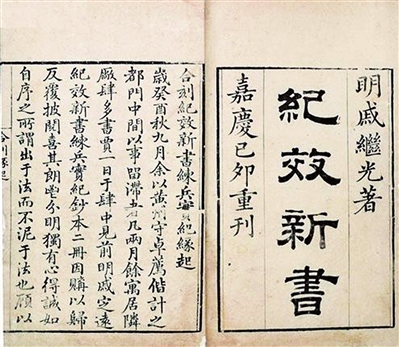 明戚繼光著
紀效新書
嘉慶己夘重刊
合刻紀效新書練兵實紀緣起
歲癸酉秋九月余以黃州守卓薦偕計之
都門中間以事留滯者凡兩月餘寓居隣
廠肆多書賈一日于肆中見前明戚定遠
紀效新書練兵實紀鈔本二冊因購以歸
反覆披閱喜其朗暢分明獨有心得誠如
自序之所謂出于法而不泥于法也顧以
合刻緣起